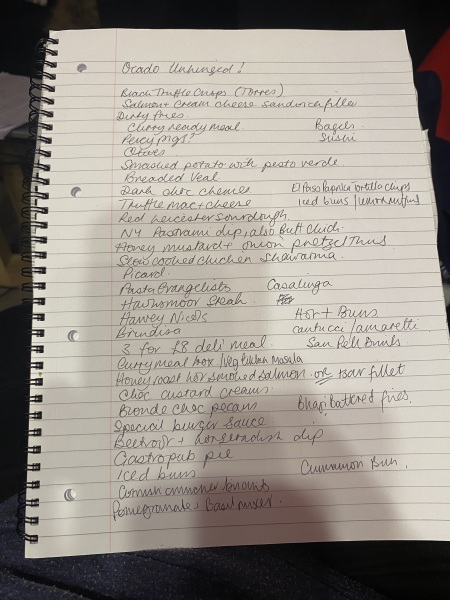 Ocado Unhinged!
Black Truffle Crisps (Torres)
Salmon + cream cheese sandwich filler
Dirty fries
Curry ready meal Bagels
Percy pigs? Sushi
Olives
Smashed potato with pesto verde
Breaded Veal
Dark choc cherries El Paso Paprika tortilla chips
Truffle mac + cheese Iced buns / muffins
Red Leicester sourdough
NY Pastrami dip, also Butt Chick
Honey mustard + onion pretzel Thins
Slow cooked chicken Shawarma
Picard
Pasta Evangelists Casalinga
Hawksmoor Steak
Harvey Nicols Hot + Buns
Brindisa cantucci / amaretti
3 for £8 deli meal San Pell Bombs
Curry meal box / veg masala
Honey roast hot smoked salmon or fillet
Choc custard creams
Blonde choc pecans Bhaji battered fries
Special burger sauce
Beetroot + horseradish dip
Gastropub pie
Iced buns Cinnamon Bun
Pomegranate + Basil mixer